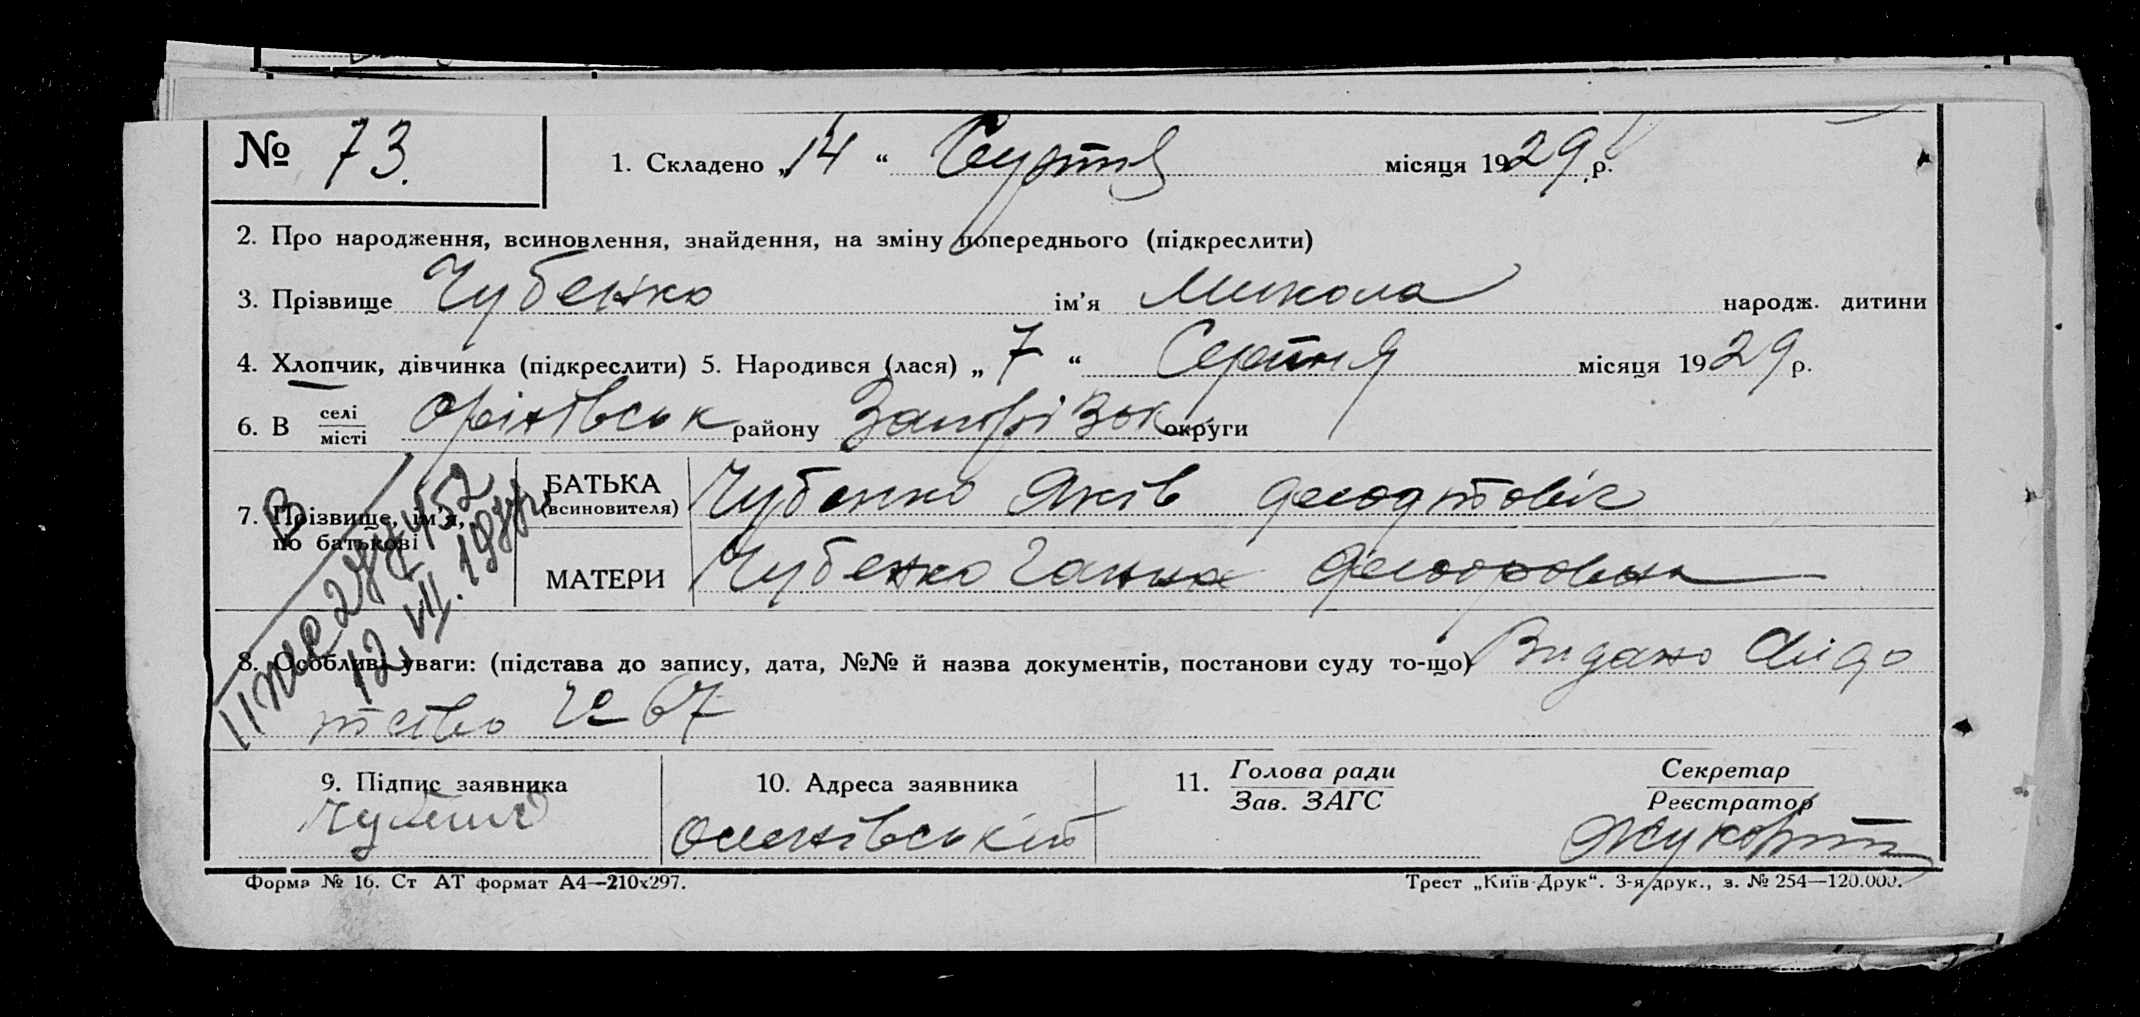 № 73. 1. Складено „14“ Серпня місяця 1929 р.
2. Про народження, всиновлення, знайдення, на зміну попереднього (підкреслити)
3. Прізвище Чубенко ім'я Микола народж. дитини
4. Хлопчик, дівчинка (підкреслити) 5. Народився (лася) „7“ Серпня місяця 1929 р.
6. В селі місті Оріхівськ району Запорізьк округи
7. Прізвище, ім'я, по батькові
БАТЬКА (всиновителя) Чубенко Яків
МАТЕРИ Чубенко Ганна Федоровна
12. VII.
8. Особливі уваги: (підстава до запису, дата, №№ й назва документів, постанови суду то-що) Видано свідо
тство № 67
9. Підпис заявника
10. Адреса заявника
11. Голова ради Зав. ЗАГС
Секретар Реєстратор
Форма № 16. Ст АТ формат А4—210х297.
Трест „Київ-Друк“. 3-я друк., з. № 254—120.000.